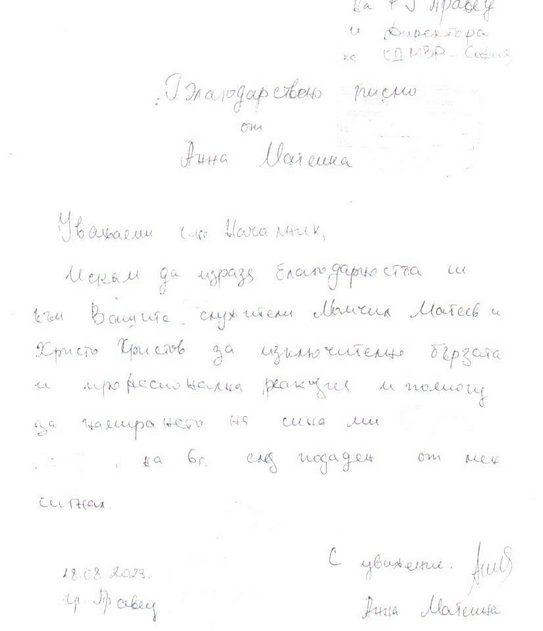 на РУ Правец
и Директора
на ОДМВР - София
Благодарствено писмо
от
Анна Матеина
Уважаеми г-н Началник,
Искам да изразя благодарността си
към Вашите служители Момчил Матеев и
Христо Христов за изключително бързата
и професионална реакция и помощ
за намирането на сина ми
на 6г. след подаден от мен
сигнал.
18.08.2023.
гр. Правец
С уважение.
Анна Матеина